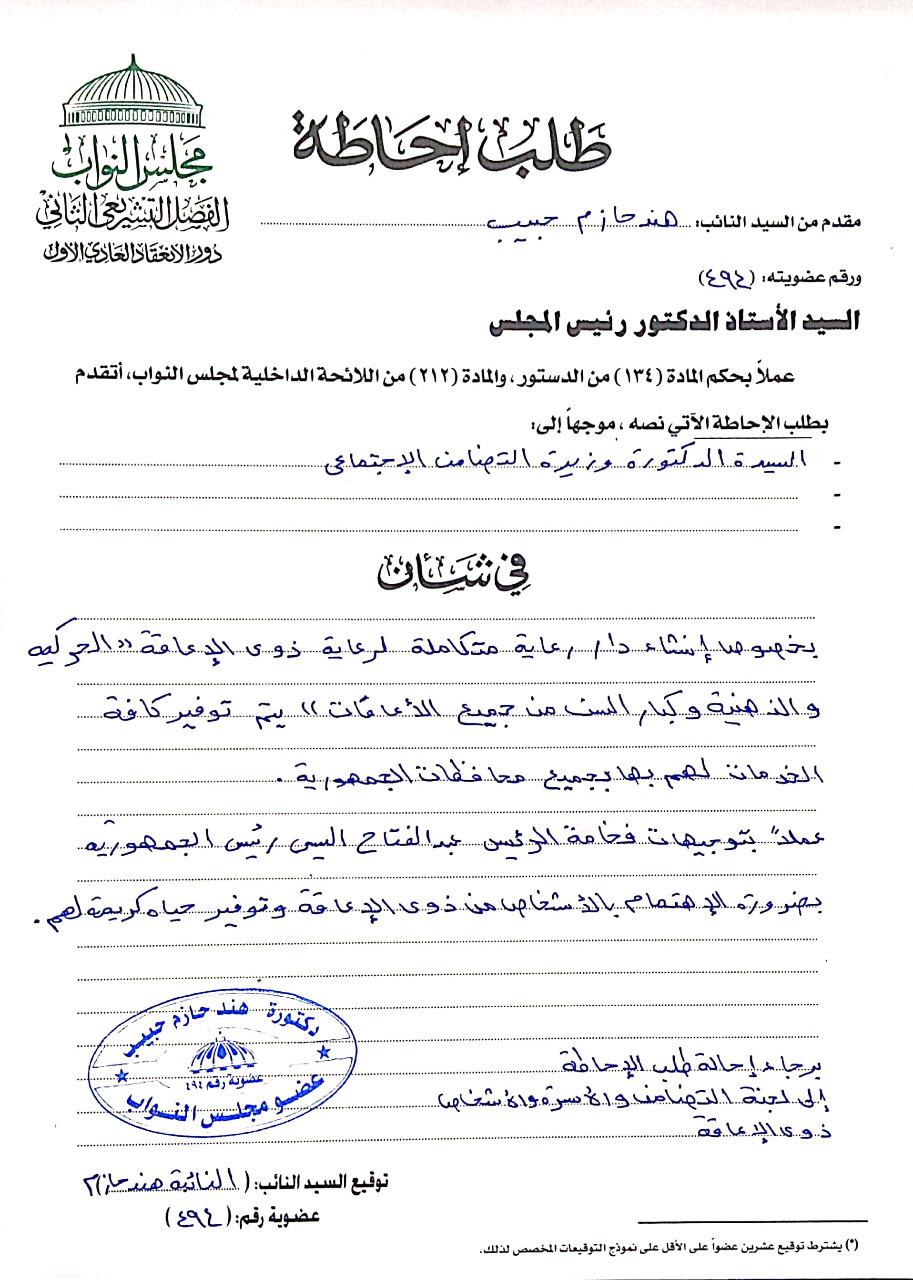 مجلس النواب
الفصل التشريعى الثانى
دور الانعقاد العادى الاول
طلب إحاطة
مقدم من السيد النائب: هند حازم حبيب
ورقم عضويته: (٤٩٤)
السيد الأستاذ الدكتور رئيس المجلس
عملاً بحكم المادة (١٣٤) من الدستور، والمادة (٢١٢) من اللائحة الداخلية لمجلس النواب، أتقدم
بطلب الإحاطة الآتي نصه، موجهاً إلى:
- السيدة الدكتورة وزيرة التضامن الإجتماعى
-
-
في شأن
بخصوص إنشاء دار رعاية متكاملة لرعاية ذوى الإعاقة "الحركيه
والذهنية وكبار السن من جميع الأعاقات" يتم توفير كافة
الخدمات لهم بها بجميع محافظات الجمهورية.
عملاً بتوجيهات فخامة الرئيس عبدالفتاح السيسى رئيس الجمهورية
بضرورة الإهتمام بالأشخاص من ذوى الإعاقة وتوفير حياه كريمة لهم.
برجاء إحالة طلب الإحاطة
إلى لجنة التضامن والأسرة والأشخاص
ذوى الإعاقة
دكتورة هند حازم حبيب
عضوية رقم ٤٩٤
عضو مجلس النواب
توقيع السيد النائب: (النائبة هند حازم)
عضوية رقم: (٤٩٤)
(*) يشترط توقيع عشرين عضواً على الأقل على نموذج التوقيعات المخصص لذلك.